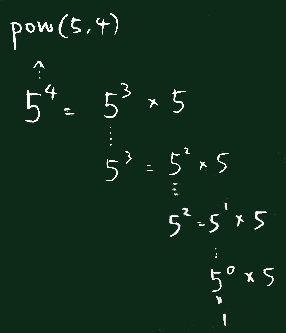 pow(5,4)
5⁴ = 5³ × 5
5³ = 5² × 5
5² = 5¹ × 5
5⁰ × 5
1